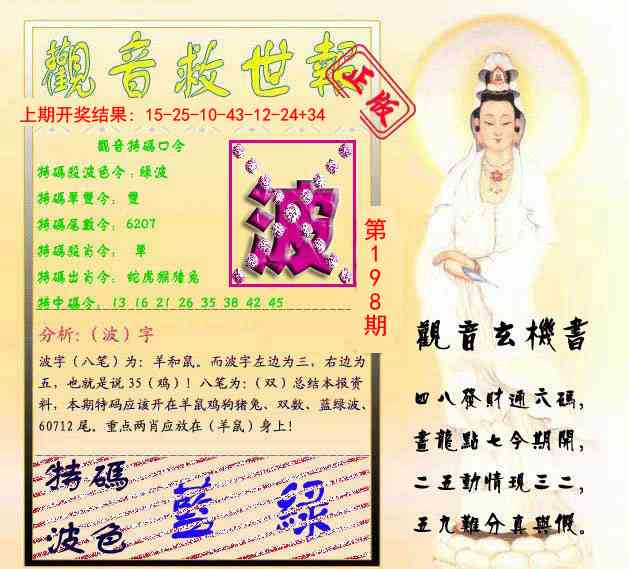 觀音救世報
正版
上期开奖结果：15-25-10-43-12-24+34
觀音特碼口令
特碼段波色令：綠波
特碼單雙令： 雙
特碼尾數令： 6207
特碼段肖令： 單
特碼出肖令： 蛇虎猴猪兔
特中碼令： 13 16 21 26 35 38 42 45
波
第198期
分析：（波）字
波字（八笔）为：羊和鼠。而波字左边为三，右边为
五，也就是说 35（鸡）！八笔为：（双）总结本报资
料，本期特码应该开在羊鼠鸡狗猪兔、双数、蓝绿波、
60712 尾。重点两肖应放在（羊鼠）身上！
特碼
波色
藍 綠
觀音玄機書
四八發財通六碼，
畫龍點七今期開，
二五動情現三二，
五九難分真與假。